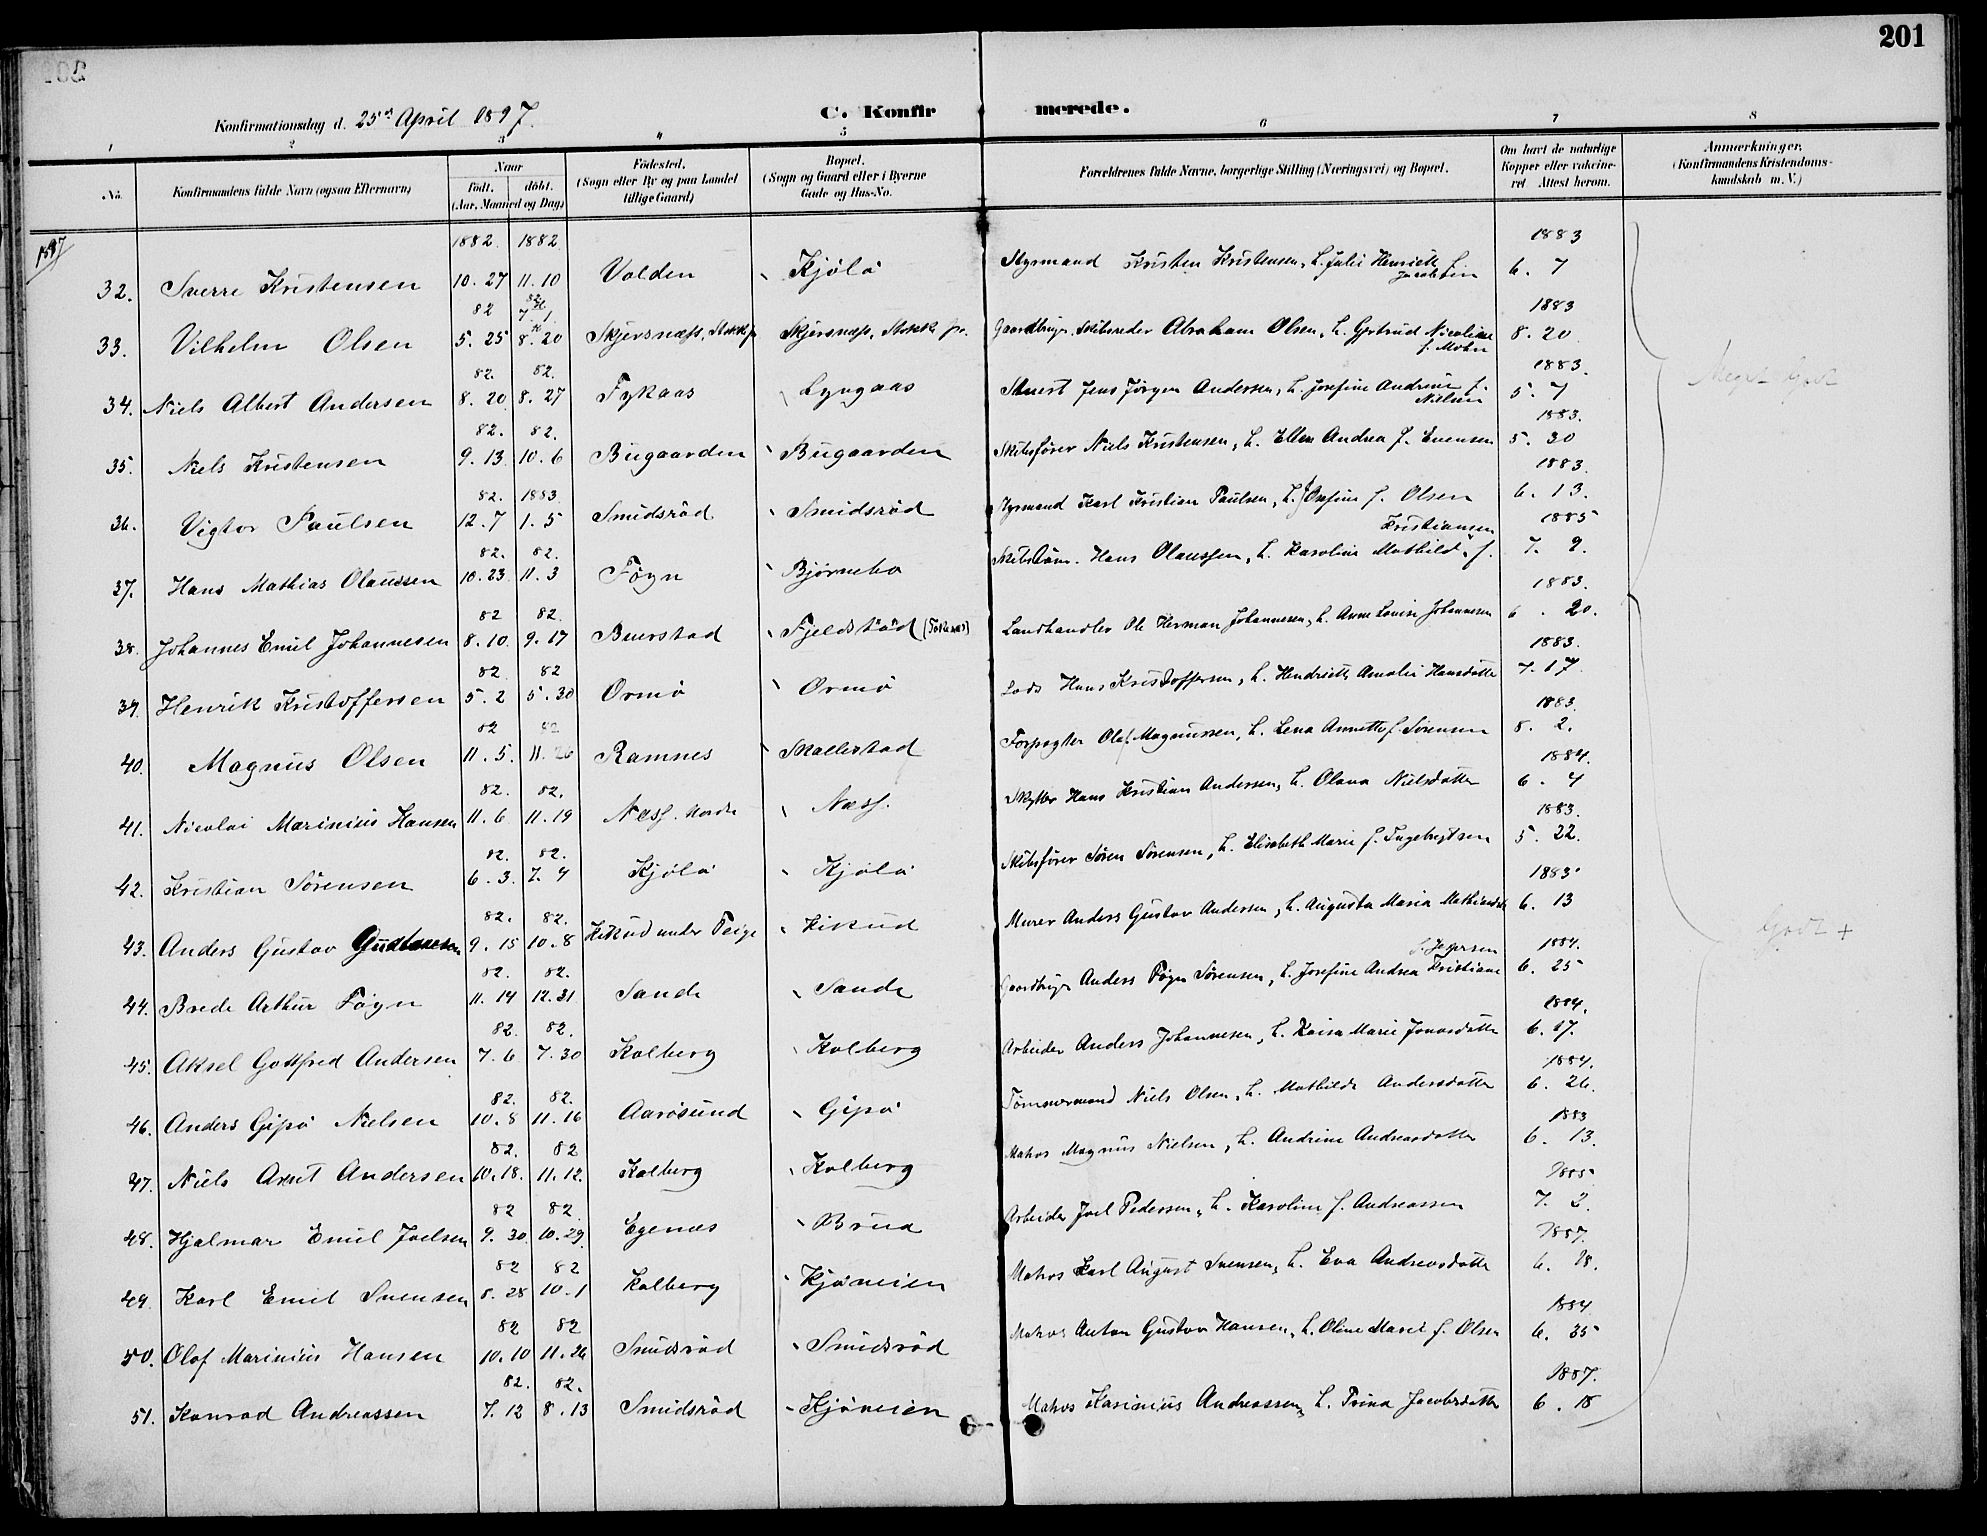 201
Konfirmationsdag d. 25de April 1897.
C. Konfirmerede.
1 2 3 4 5 6 7 8
No.
Konfirmandens fulde Navn (ogsaa Efternavn)
Naar
født. døbt.
(Aar, Maaned og Dag)
Fødested.
(Sogn eller By og paa Landet
tillige Gaard)
Bopæl.
(Sogn og Gaard eller i Byerne
Gade og Hus-No.
Forældrenes fulde Navne, borgerlige Stilling (Næringsvei) og Bopæl.
Om havt de naturlige
Kopper eller vakcine-
ret Attest herom.
Anmærkninger.
(Konfirmandens Kristendoms-
kundskab m. V.)
1897
1882. 1882. 1883
32. Sverre Kristensen 10.27 11.10 Valden Kjølø Styrmand Kristen Kristensen, h. Julie Henriette f. Jacobsen 6. 7
82 1883
33. Vilhelm Olsen 5.25 8.20 Skjersnæss, Stokke pr. Skjersnæss, Stokke pr. Gaardbruger, Skibsreder Abraham Olsen, h. Gertrud Nicoline f. Mohn 8.20
82. 82. 1883.
34. Niels Albert Andersen 8.20 8.27 Fykaas Lyngaas Stuert Jens Jørgen Andersen, h. Josefine Andrine f. Nielsen 5. 7
82. 82. 1883.
35. Niels Kristensen 9.13 10.6 Bugaarden Bugaarden Skibsfører Niels Kristensen, h. Ellen Andrea f. Evensen 5. 30
82. 1883 1883.
36. Vigtor Paulsen 12.7 1.5 Smidsrød Smidsrød Styrmand Karl Kristian Paulsen, h. Josefine f. Olsen 6.13.
82. 82. 1885
37. Hans Mathias Olaussen 10.23 11.3 Føgn Bjørnebo Skibstøm. Hans Olaussen, h. Karoline Mathilde f. Kristiansen 7. 9.
82 82. 1883.
38. Johannes Emil Johannesen 8.10 9.17 Buerstad Fjeldstød Landhandler Ole Herman Johannesen, h. Anne Louise Johannesen 6. 20.
82 82 1883.
39. Henrik Kristoffersen 5.2 5.30 Ormø Ormø Lods Hans Kristoffersen, h. Hendriette Amalie Hansdatter 7.17
82 82 1883.
40. Magnus Olsen 11.5. 11.26 Ramnes Skallestad Forpagter Olaf Magnussen, h. Lena Annette f. Sørensen 8. 2.
82. 82. 1884.
41. Nicolai Marinius Hansen 11.6 11.19 Næss. Nordre Næss. Skytter Hans Kristian Andersen, h. Olava Nielsdatter 6. 4
82. 82. 1883.
42. Kristian Sørensen 6.3. 7.4 Kjølø Kjølø Skibsfører Søren Sørensen, h. Elisabeth Marie f. Ingebrigtsen 5. 22.
82. 82. 1883
43. Anders Gustav 9.15 10.8 Hikud under Teige Hikud Murer Anders Gustav Andersen, h. Augusta Maria Mathiasdtr 6. 13
82. 82. 1884.
44. Brede Arthur Føgn 11.14 12.31 Sande Sande Gaardbruger Anders Føgn Sørensen, h. Josefine Andrea Kristiane f. Jespersen 6. 25
82. 82. 1884.
45. Aksel Gottfred Andersen 7.6 7.30 Kolberg Kolberg Arbeider Anders Johannesen, h. Kaisa Marie Jonasdatter 6.17.
82. 82. 1884.
46. Anders Gipø Nielsen 10.8 11.16 Aarøsund Gipø Tømmermand Niels Olsen, h. Mathilde Andersdatter 6. 26.
82. 82 1883
47. Niels Arnt Andersen 10.18. 11.12. Kolberg Kolberg Matros Magnus Nielsen, h. Andrine Andreasdatter 6. 13.
82 82. 1885
48. Hjalmar Emil Joelsen 9.30 10.29. Egenes Brua Arbeider Joel Pedersen, h. Karoline f. Andreassen 7. 2.
82 82 1887.
49. Karl Emil Svensen 8.28 10.1 Kolberg Kjøneien Matros Karl August Svensen, h. Eva Andreasdatter 6. 18.
82 82 1884
50. Olaf Marinius Hansen 10.10 11.26 Smidsrød Smidsrød Matros Anton Gustav Hansen, h. Oline Marie f. Olsen 6. 35
82. 82. 1887.
51. Konrad Andreassen 7.12 8.13 Smidsrød Kjøneien Matros Karinius Andreassen, h. Trina Jacobsdatter 6. 18
Meget godt
godt +